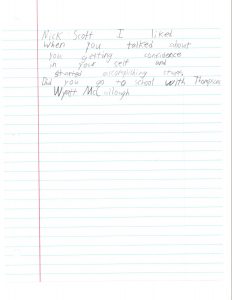 Nick Scott I liked
when you talked about
you getting confidence
in your self and
started accomplishing stuff.
Did you go to school with Thompson
Wyatt McCullough